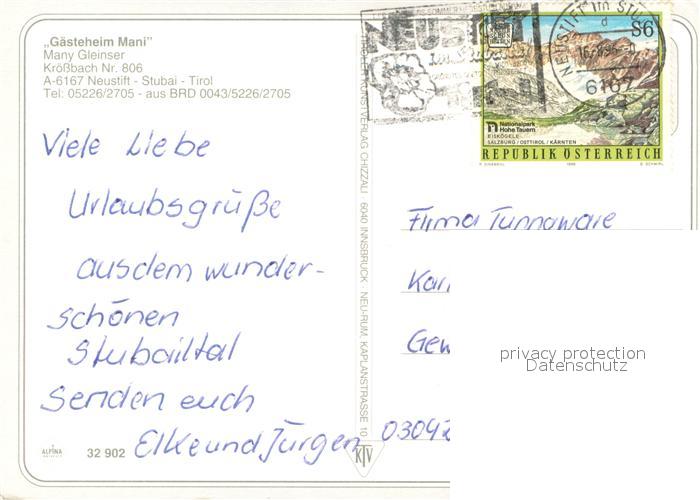 „Gästeheim Mani”
Many Gleinser
Krößbach Nr. 806
A-6167 Neustift - Stubai - Tirol
Tel: 05226/2705 - aus BRD 0043/5226/2705
Viele Liebe
Urlaubsgrüße
aus dem wunder-
schönen
Stubailtal
Senden euch
Elke und Jürgen
ALPINA
32 902
VERLAG CHIZZALI · 6040 INNSBRUCK · NEU-RUM, KAPLANSTRASSE 10
KTV
NEUSTIFT
NEUSTIFT IM STUB
6167
S6
Nationalpark
Hohe Tauern
EISKÖGELE
SALZBURG / OSTTIROL / KÄRNTEN
REPUBLIK ÖSTERREICH
1996
Firma Tunnaware
Kar
Gew
03042
privacy protection
Datenschutz